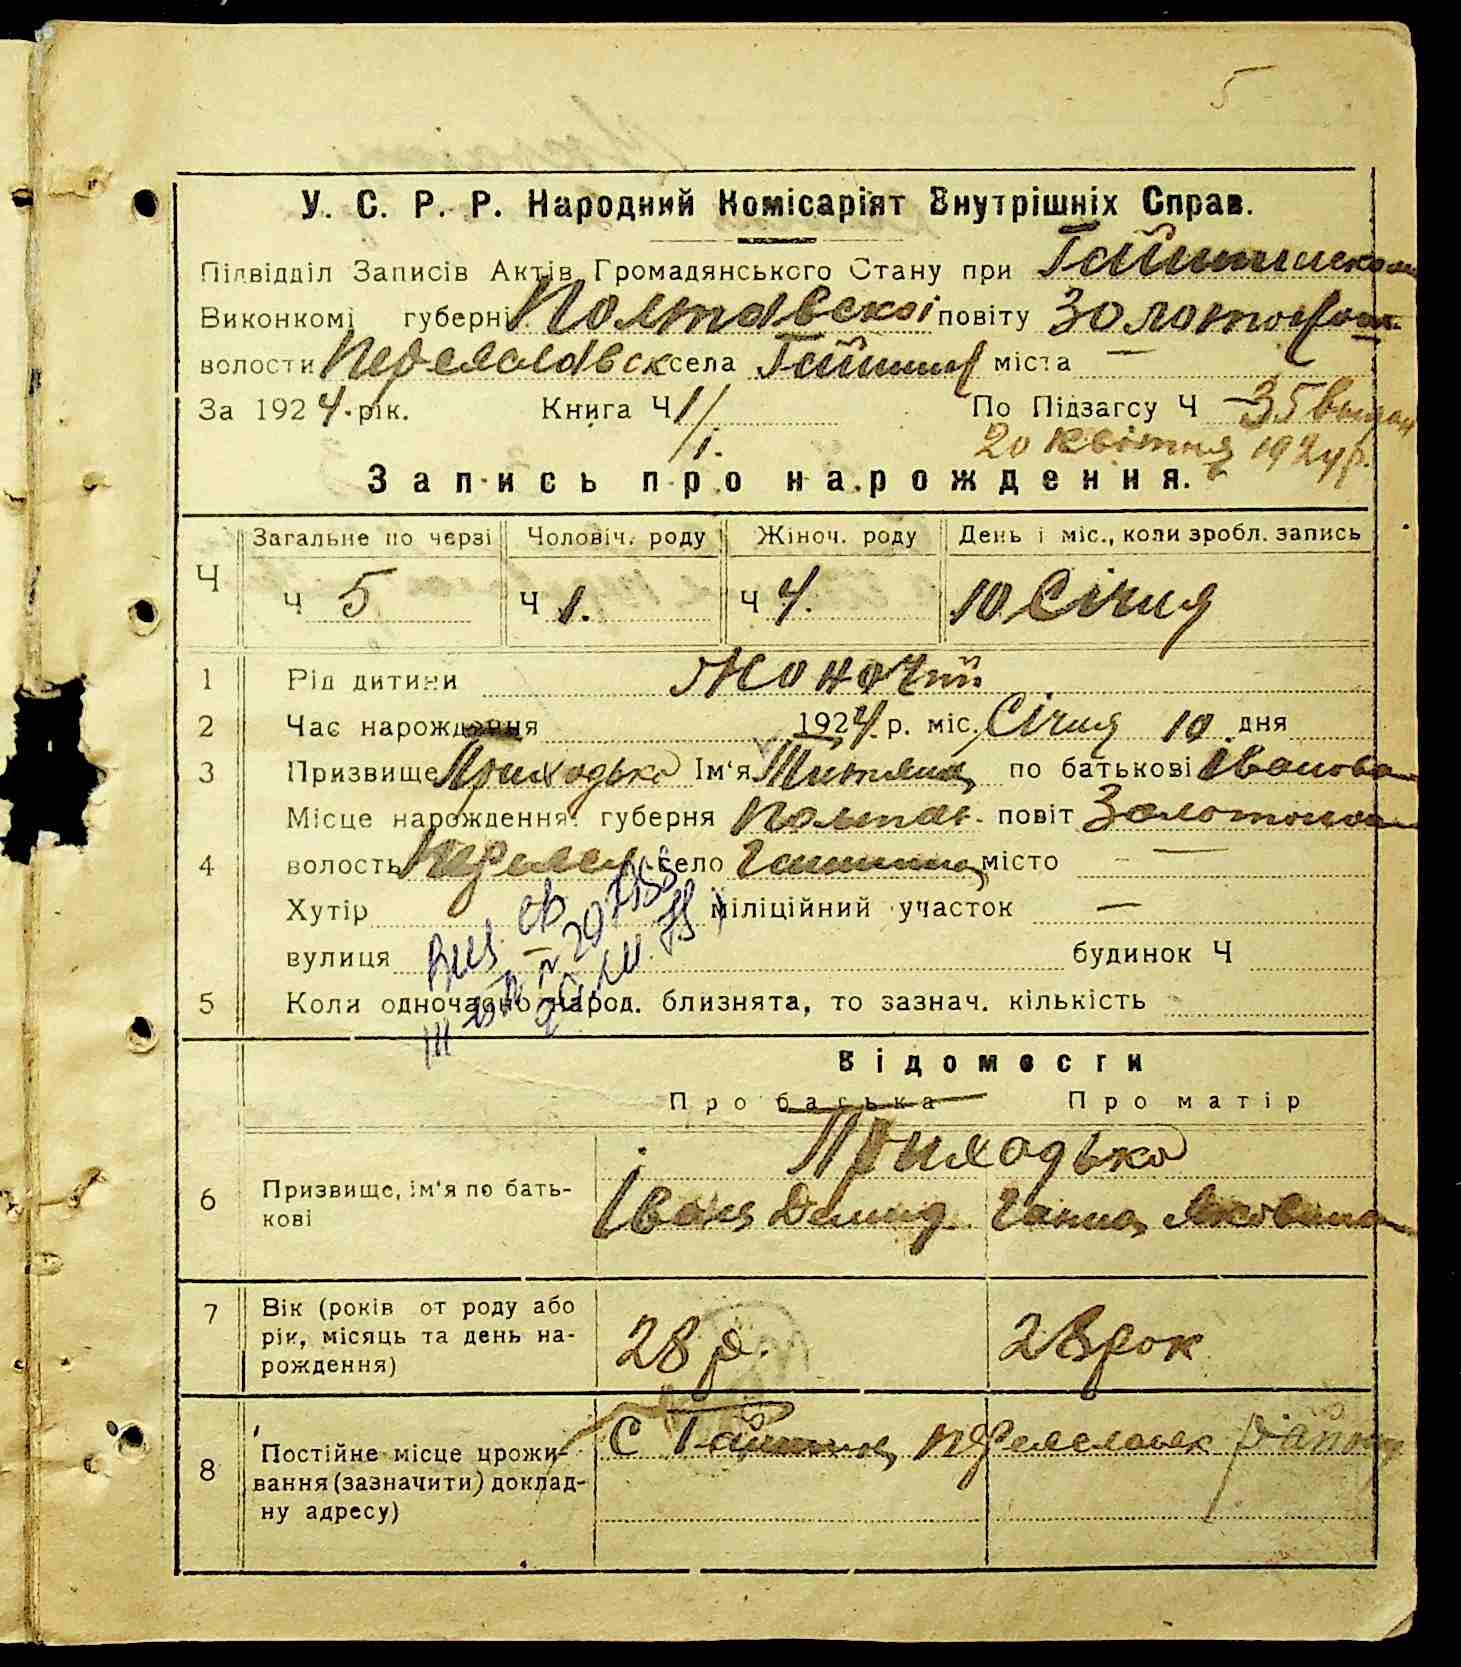 5
У. С. Р. Р. Народний Комісаріят Внутрішніх Справ.
Підвідділ Записів Актів Громадянського Стану при Гайшинском
Виконкомі губерні Полтавскоі повіту Золотонош.
волости Переяславск села Гайшин міста —
За 1924 рік. Книга Ч 1/1. По Підзагсу Ч 35
20 квітня 1924 р.
Запись про народження.
Ч Загальне по черзі Чоловіч. роду Жіноч. роду День і міс., коли зробл. запись
Ч 5 Ч 1. Ч 4. 10 Січня
1 Рід дитини Жоночий
2 Час народження 1924 р. міс. Січня 10 дня
3 Призвище Приходько Ім'я Титяна по батькові Іванова
Місце народження: губерня Полтав. повіт Золотонош
4 волость Переясл село Гайшина місто —
Хутір міліційний участок —
вулиця будинок Ч
5 Коли одночасно народ. близнята, то зазнач. кількість
Відомости
Про батька Про матір
Приходько
6 Призвище, ім'я по батькові Іван Демид. Ганна Яковлна
7 Вік (років от роду або рік, місяць та день народження) 28 р. 28 рок
8 Постійне місце прожи-
вання (зазначити) доклад- с Гайшина, Переяславск району
ну адресу)